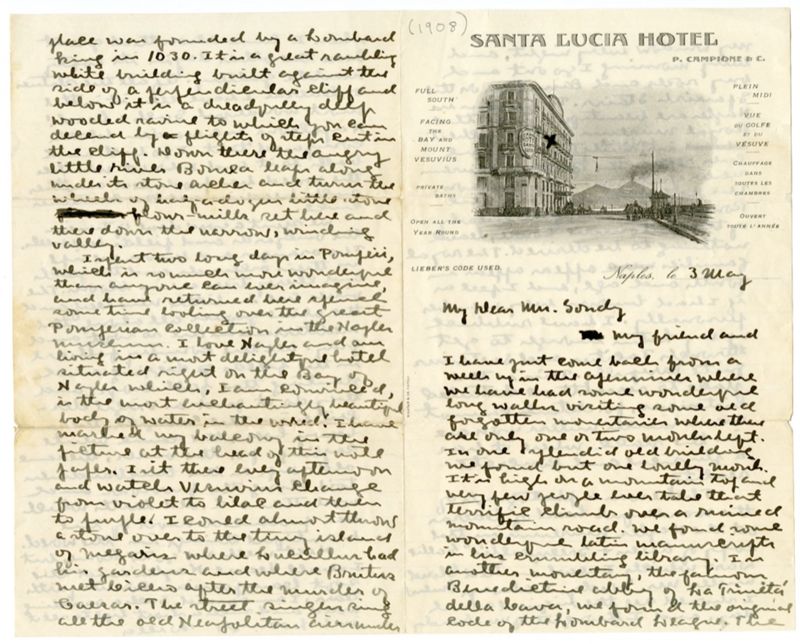 (1908)
SANTA LUCIA HOTEL
P. CAMPIONE & C.
FULL
SOUTH
FACING
THE
BAY AND
MOUNT
VESUVIUS
PRIVATE
BATHS
OPEN ALL THE
YEAR ROUND
PLEIN
MIDI
VUE
DU GOLFE
ET DU
VESUVE
CHAUFFAGE
DANS
TOUTES LES
CHAMBRES
OUVERT
TOUTE L'ANNÉE
LIEBER'S CODE USED.
Naples, le 3 May
My Dear Mrs. Gondy
my friend and
I have just come back from a
week up in the Apennines where
we have had some wonderful
long walks visiting some old
forgotten monetaries where there
are only one or two monks kept.
In one splendid old building
we found but one lonely monk.
It is high on a mountain top and
very few people ever take that
terrific climb over a ruined
mountain road. We found some
wonderful latin manuscripts
in his crumbling library. In
another monetary, the famous
Benedictine abbey of La Trinità
della Cava, we found the original
code of the Lombard League. The
place was founded by a Lombard
King in 1030. It is a great rambling
white building built against the
side of a perpendicular cliff and
below it is a dreadfully deep
wooded ravine to which you can
decend by flights of steps cut in
the cliff. Down there the angry
little river Bonea leaps along
under its stone arches and turns the
wheels of half a dozen little stone
flour-mills set here and
there down the narrow, winding
valley.
I spent two long days in Pompeii,
which is so much more wonderful
than anyone can ever imagine,
and have returned here spend
some time looking over the great
Pompeian collection in the Naples
museum. I love Naples and am
living in a most delightful hotel
situated right on the Bay of
Naples which, I am convinced,
is the most enchantingly beautiful
body of water in the world. I have
marked my balcony in the
picture at the head of this note
paper. I sit there every afternoon
and watch Vesuvius change
from violet to lilac and then
to purple. I could almost throw
a stone over to the tiny island
of Megaris where Lucullus had
his gardens and where Brutus
met Cicero after the murder of
Caesar. The street singers sing
all the old Neapolitan airs under